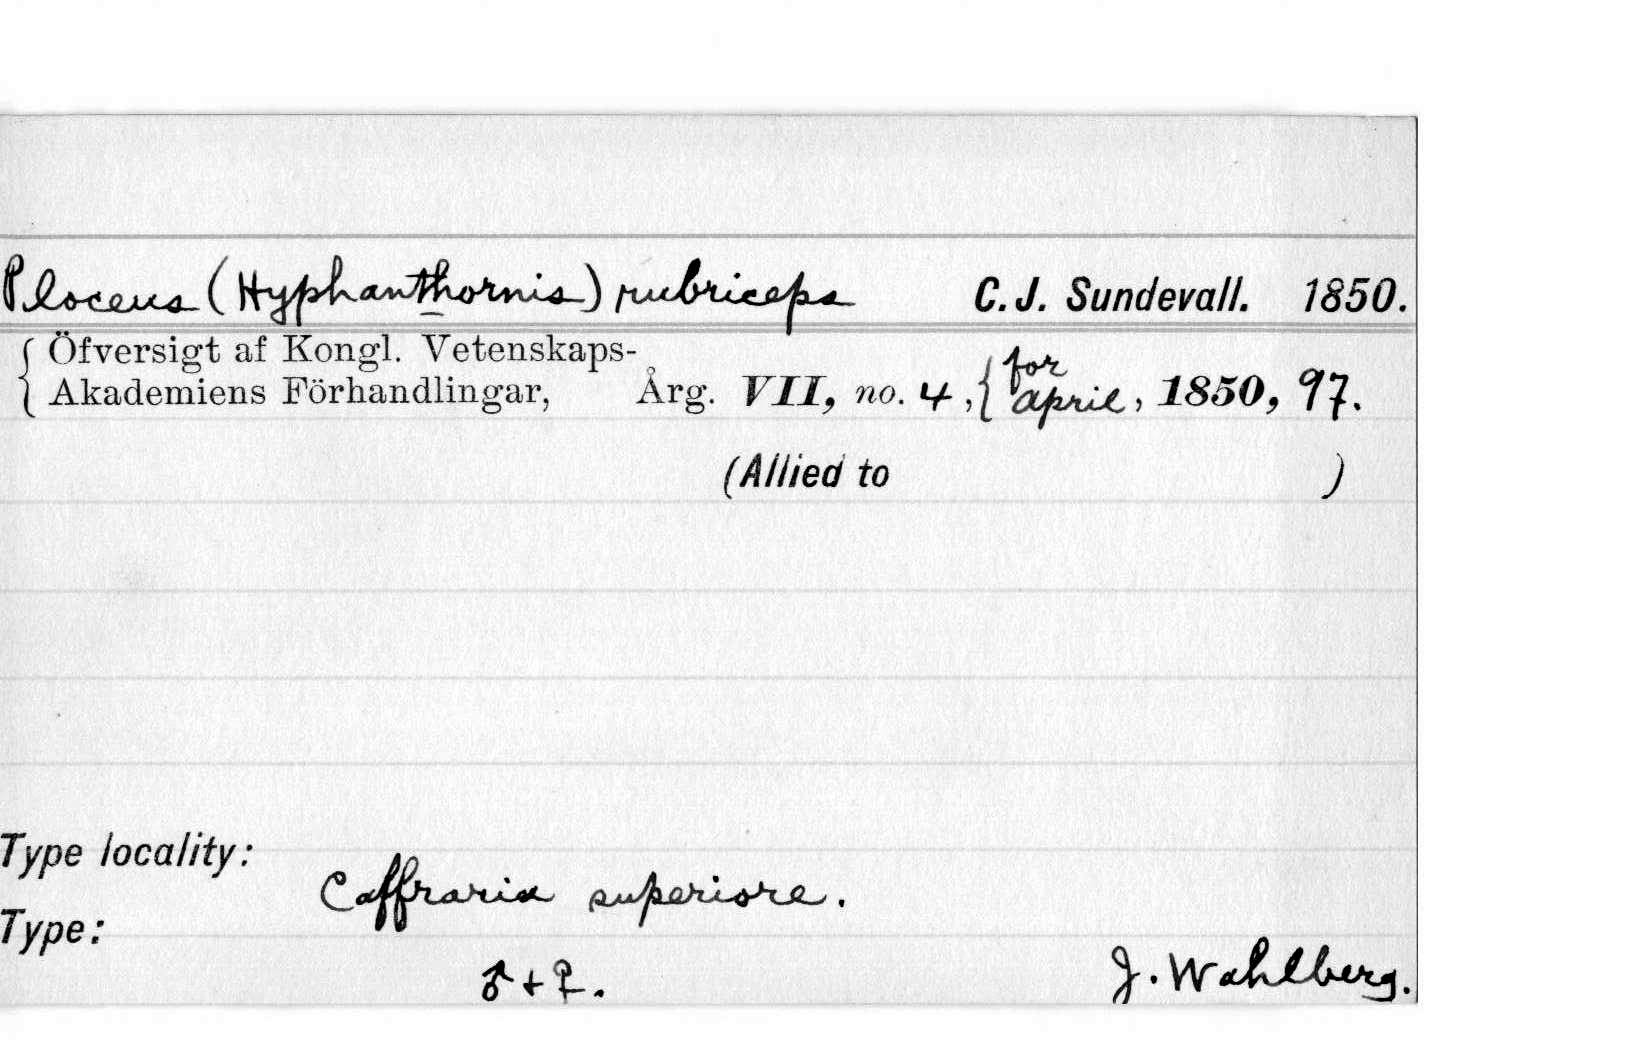 Ploceus (Hyphanthornis) rubriceps C. J. Sundevall. 1850.
{ Öfversigt af Kongl. Vetenskaps-
Akademiens Förhandlingar, Årg. VII, no. 4, { for april, 1850, 97.
(Allied to )
Type locality:
Caffraria superiore.
Type:
♂ + ♀.
J. Wahlberg.